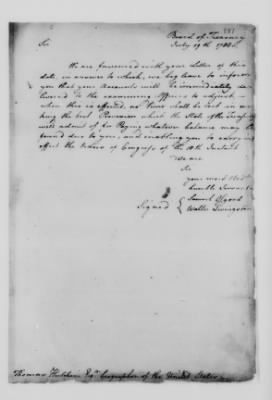 Board of Treasury
July 19th 178
Sir
We are favoured with your Letter of this
date, in answer to which, we beg leave to inform
you that your Accounts will be immediately de-
livered to the examining Officers to adjust,
when this is effected, no time shall be lost in ma
king the best Provision which the State of the Treasury
will admit of for Paying whatever balance may be
found due to you, and enabling you to carry into
effect the Views of Congress of the 10th Instant
We are
Sir
your most Obdt
humble Servants
Signed { Samuel Osgood
Walter Livingston
Thomas Hutchins Esqr. Geographer of the United States